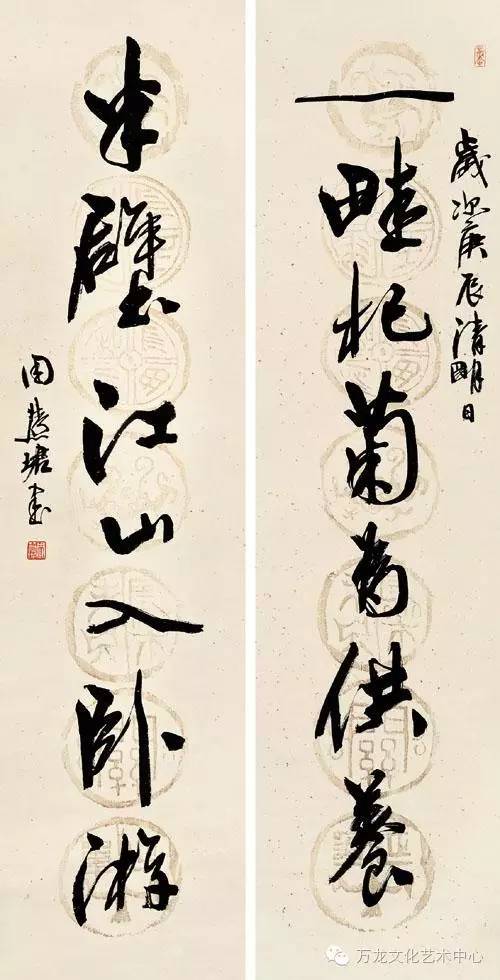 歲次庚辰清明日
一畦杞菊為供養
半壁江山入卧游
周慧珺書
万龙文化艺术中心